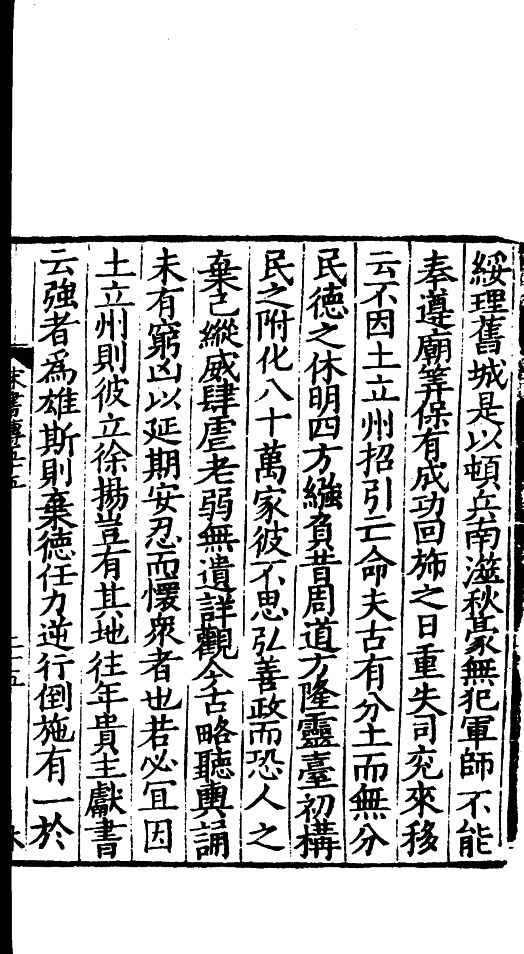 綏理舊城是以頓兵南澨秋豪無犯軍師不能
奉遵廟筭保有成功回斾之日重失司兖來移
云不因土立州招引亡命夫古有分土而無分
民德之休明四方繈負昔周道方隆靈臺初構
民之附化八十萬家彼不思弘善政而恐人之
棄己縱威肆虐老弱無遺詳觀今古略聽輿誦
未有窮凶以延期安忍而懷衆者也若必宜因
土立州則彼立徐揚豈有其地往年貴主獻書
云強者爲雄斯則棄德任力逆行倒施有一於
宋書傳五十五
二十五